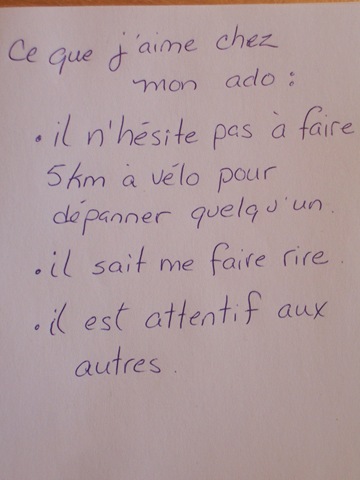 Ce que j'aime chez
mon ado :
• il n'hésite pas à faire
5km à vélo pour
dépanner quelqu'un.
• il sait me faire rire.
• il est attentif aux
autres.